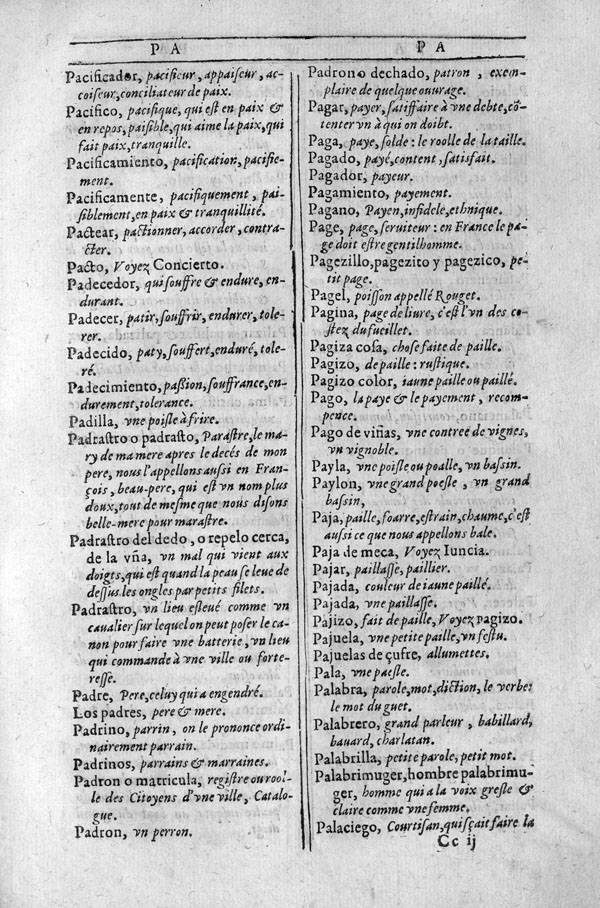 P A
Pacificador, pacifieur, appaiseur, ac-
coiseur, conciliateur de paix.
Pacifico, pacifique, qui est en paix &
en repos, paisible, qui aime la paix, qui
fait paix, tranquille.
Pacificamiento, pacification, pacifie-
ment.
Pacificamente, pacifiquement, pai-
siblement, en paix & tranquillité.
Pactear, pactionner, accorder, contra-
cter.
Pacto, Voyez Concierto.
Padecedor, qui souffre & endure, en-
durant.
Padecer, patir, souffrir, endurer, tole-
rer.
Padecido, paty, souffert, enduré, tole-
ré.
Padecimiento, passion, souffrance, en-
durement, tolerance.
Padilla, vne poisle à frire.
Padrastro o padrasto, Parastre, le ma-
ry de ma mere apres le decés de mon
pere, nous l'appellons aussi en Fran-
çois, beau-pere, qui est vn nom plus
doux, tout de mesme que nous disons
belle-mere pour marastre.
Padrastro del dedo, o repelo cerca,
de la vña, vn mal qui vient aux
doigts, qui est quand la peau se leue de
dessus les ongles par petits filets.
Padrastro, vn lieu esleué comme vn
caualier sur lequel on peut poser le ca-
non pour faire vne batterie, vn lieu
qui commande à vne ville ou forte-
resse.
Padre, Pere, celuy qui a engendré.
Los padres, pere & mere.
Padrino, parrin, on le prononce ordi-
nairement parrain.
Padrinos, parrains & marraines.
Padron o matricula, registre ou rool-
le des Citoyens d'vne ville, Catalo-
gue.
Padron, vn perron.
P A
Padron o dechado, patron, exem-
plaire de quelque ouurage.
Pagar, payer, satisfaire à vne debte, cō-
tenter vn à qui on doibt.
Paga, paye, solde : le roolle de la taille.
Pagado, payé, content, satisfait.
Pagador, payeur.
Pagamiento, payement.
Pagano, Payen, infidele, ethnique.
Page, page, seruiteur : en France le pa-
ge doit estre gentilhomme.
Pagezillo, pagezito y pagezico, pe-
tit page.
Pagel, poisson appellé Rouget.
Pagina, page de liure, c'est l'vn des co-
stez du fueillet.
Pagiza cosa, chose faite de paille.
Pagizo, de paille : rustique.
Pagizo color, iaune paille ou paillé.
Pago, la paye & le payement, recom-
pence.
Pago de viñas, vne contree de vignes,
vn vignoble.
Payla, vne poisle ou poalle, vn bassin.
Paylon, vne grand poesle, vn grand
bassin,
Paja, paille, foarre, estrain, chaume, c'est
aussi ce que nous appellons bale.
Paja de meca, Voyez Iuncia.
Pajar, paillasse, paillier.
Pajada, couleur de iaune paillé.
Pajada, vne paillasse.
Pajizo, fait de paille, Voyez Pagizo.
Pajuela, vne petite paille, vn festu.
Pajuelas de çufre, allumettes.
Pala, vne paesle.
Palabra, parole, mot, diction, le verbe:
le mot du guet.
Palabrero, grand parleur, babillard,
bauard, charlatan.
Palabrilla, petite parole, petit mot.
Palabrimuger, hombre palabrimu-
ger, homme qui a la voix gresle &
claire comme vne femme.
Palaciego, Courtisan, qui sçait faire la
Cc ij